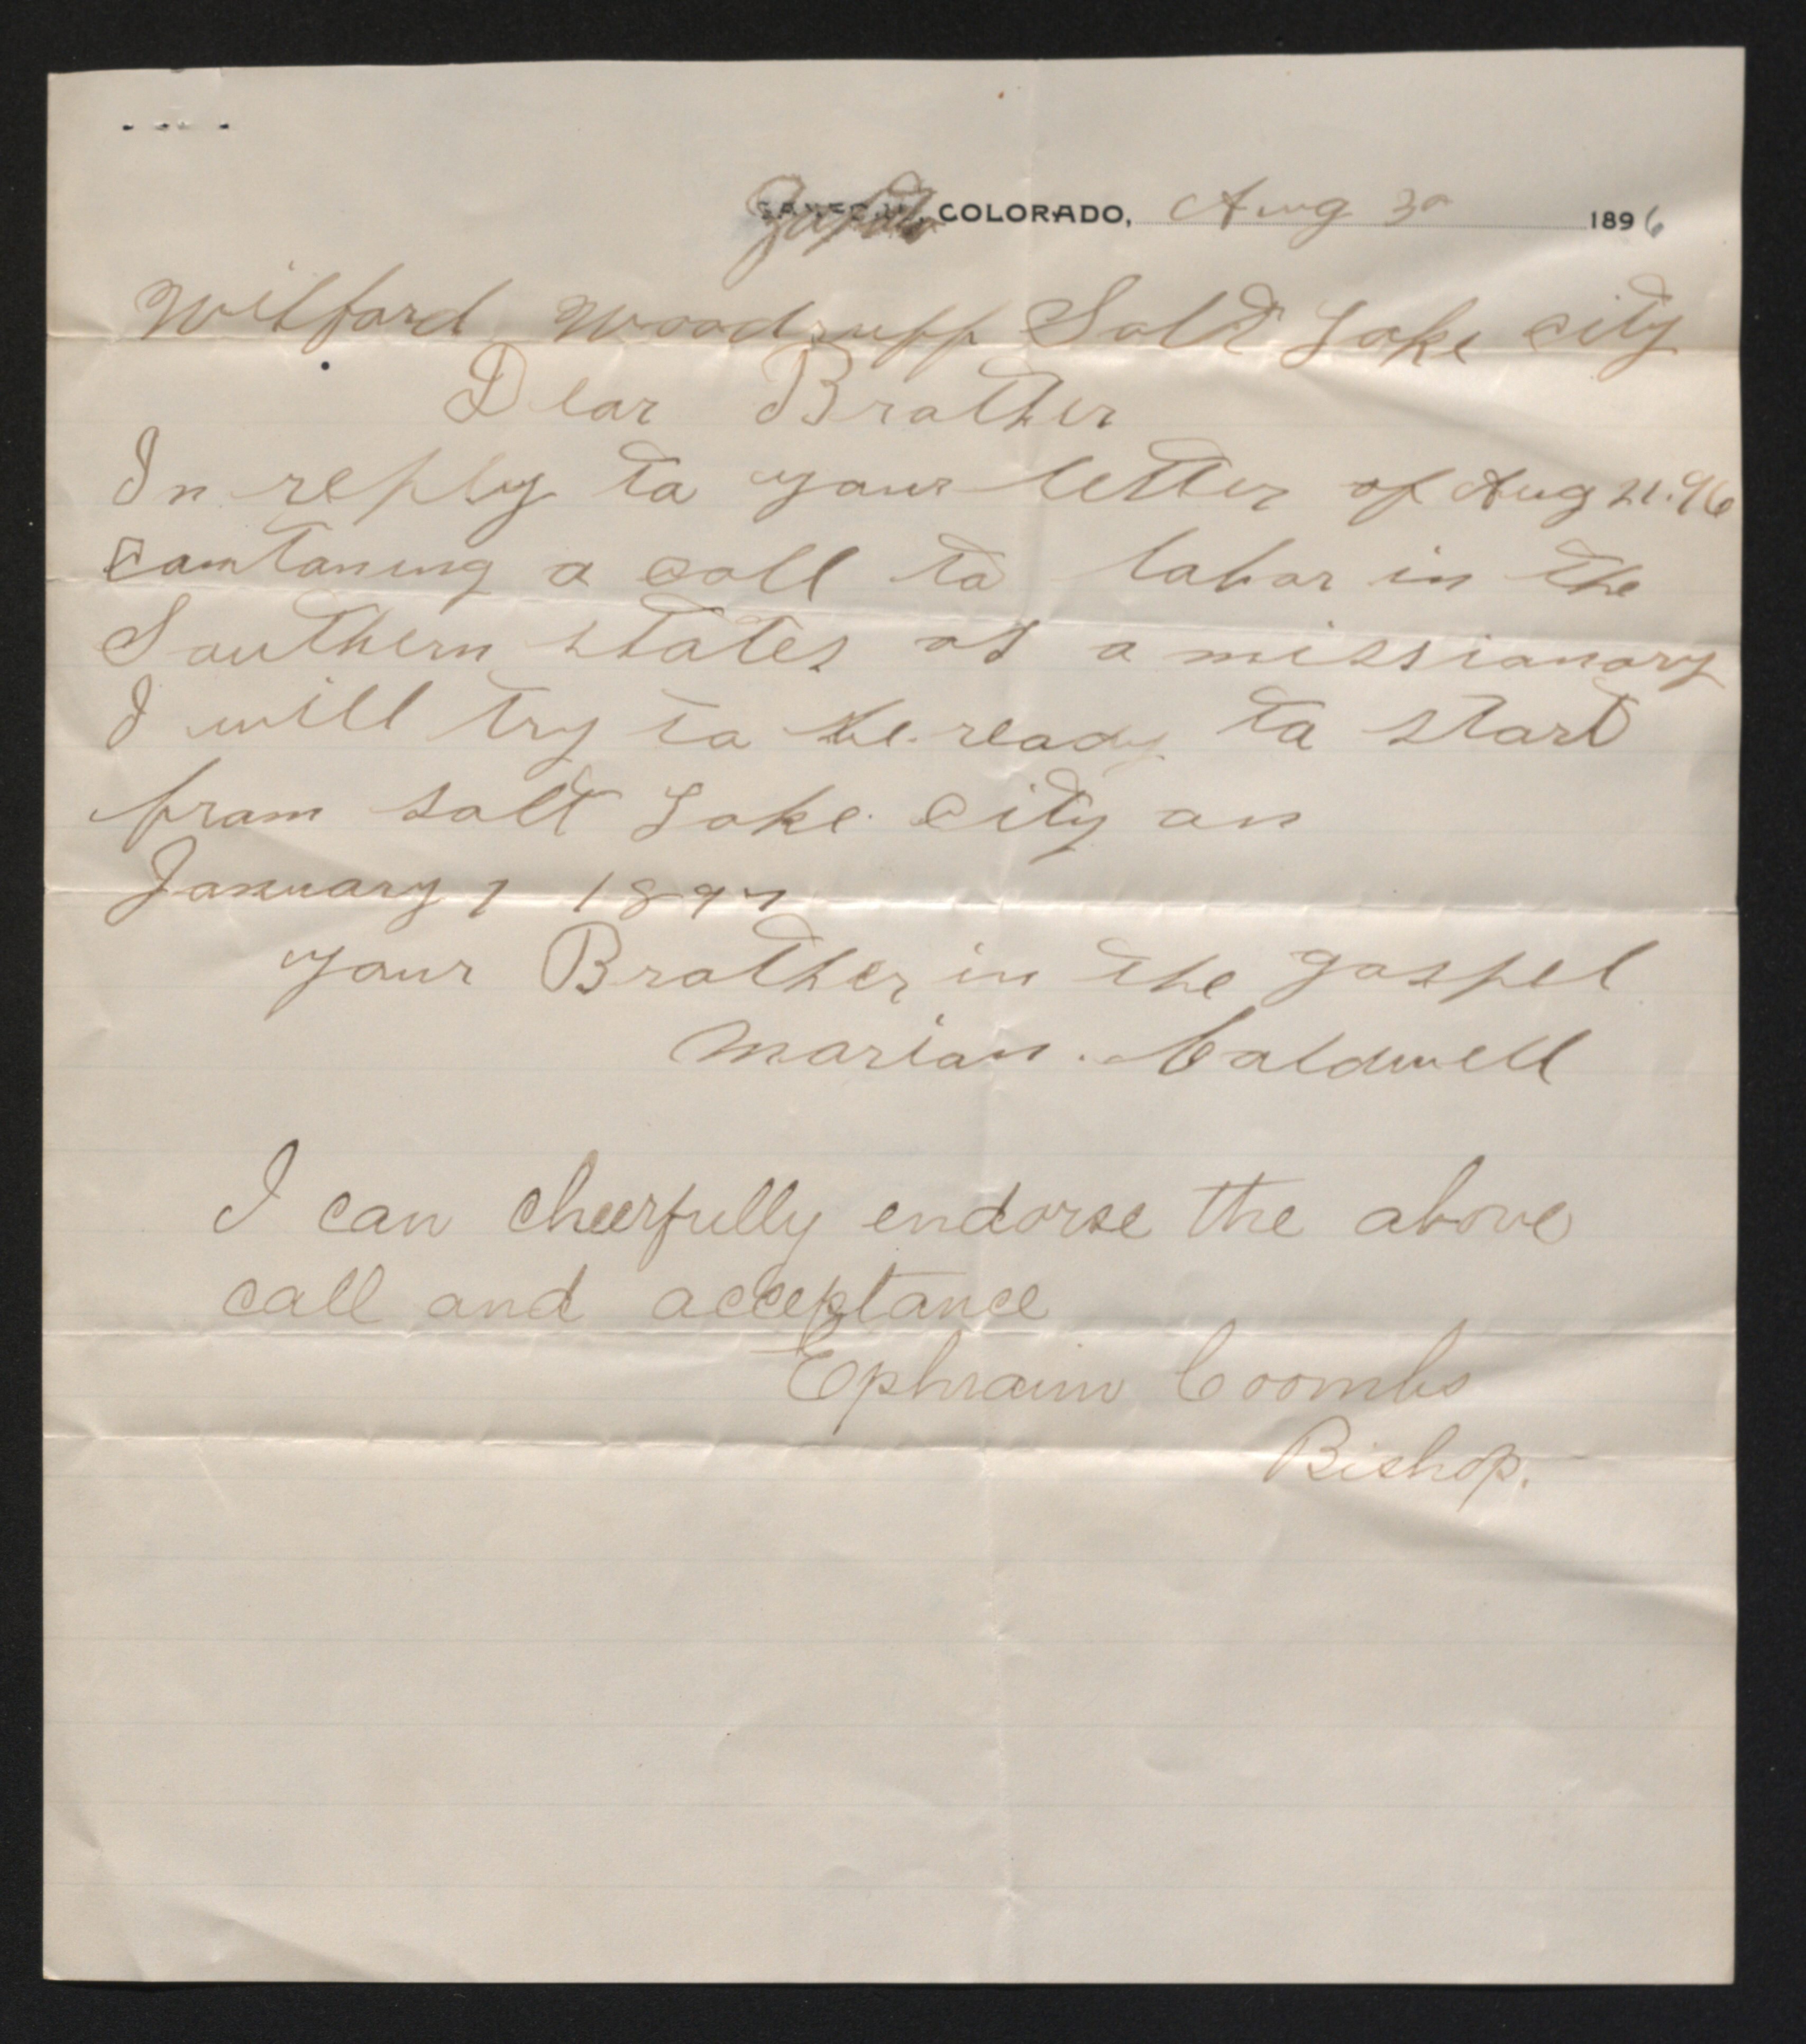 COLORADO, Aug 30 1896
Wilford Woodruff Salt Lake City
Dear Brother
In reply to your letter of Aug 21.96
containing a call to labor in the
Southern states as a missionary
I will try to be ready to start
from salt Lake city on
January 7 1897
your Brother in the gospel
Marion. Caldwell
I can cheerfully endorse the above
call and acceptance
Ephraim Coombs
Bishop.